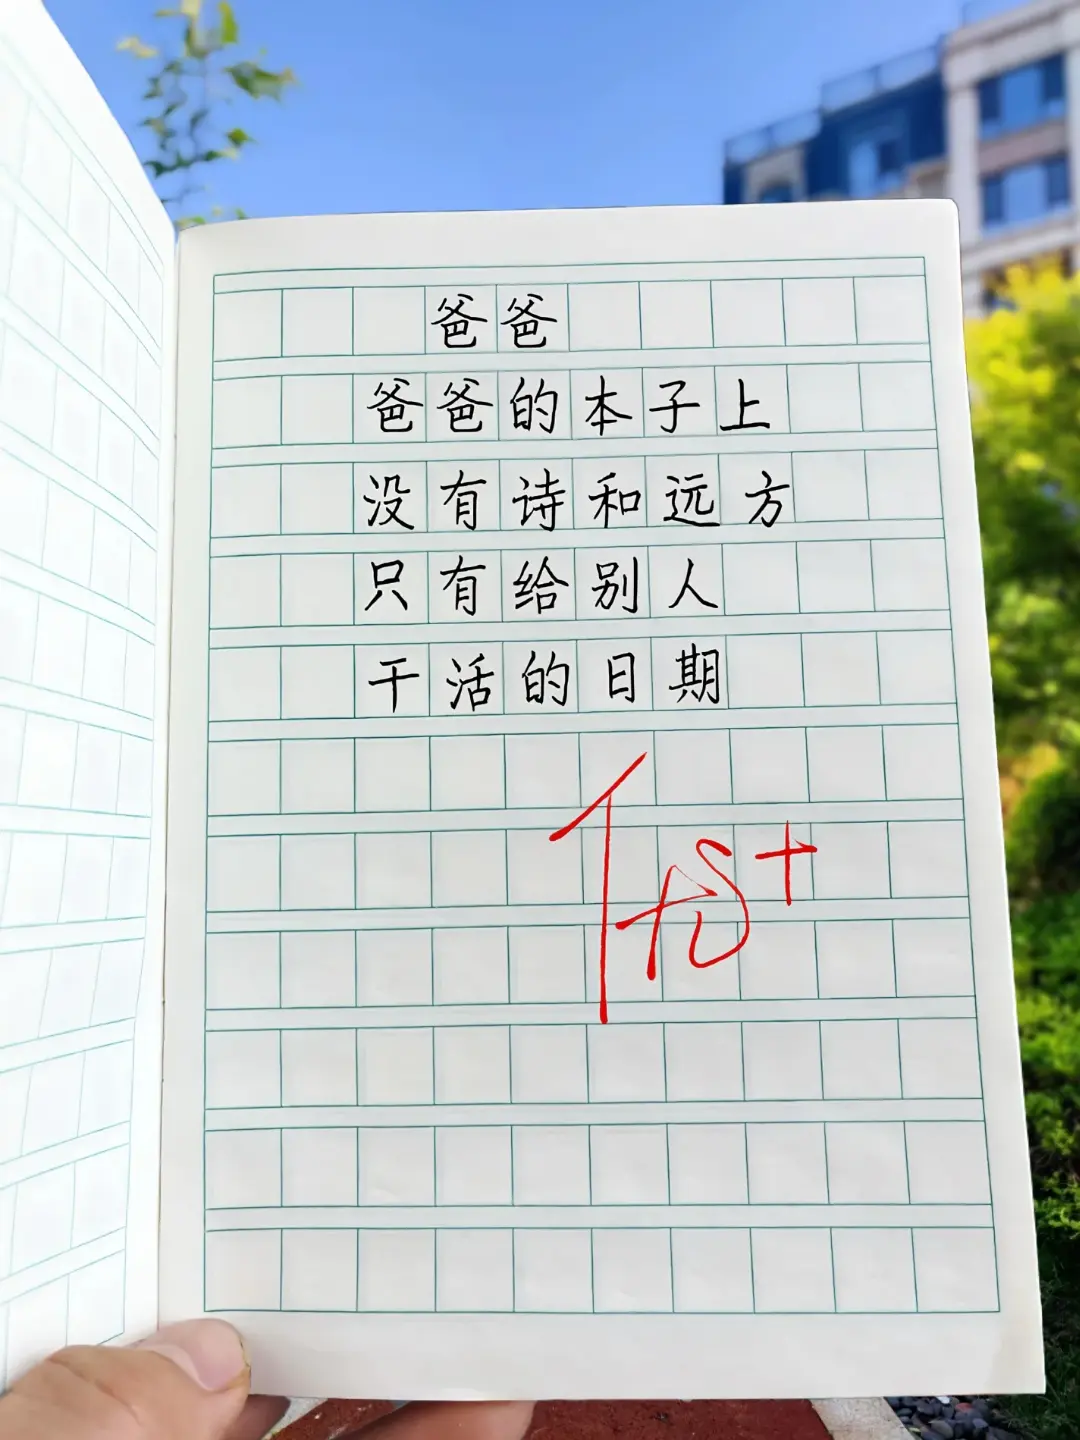 爸爸
爸爸的本子上
没有诗和远方
只有给别人
干活的日期
优+